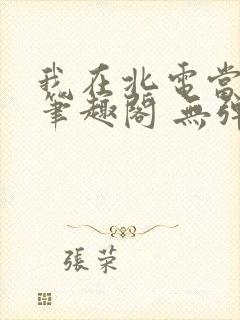 我在北電當
筆趣閣 無彈
張荣